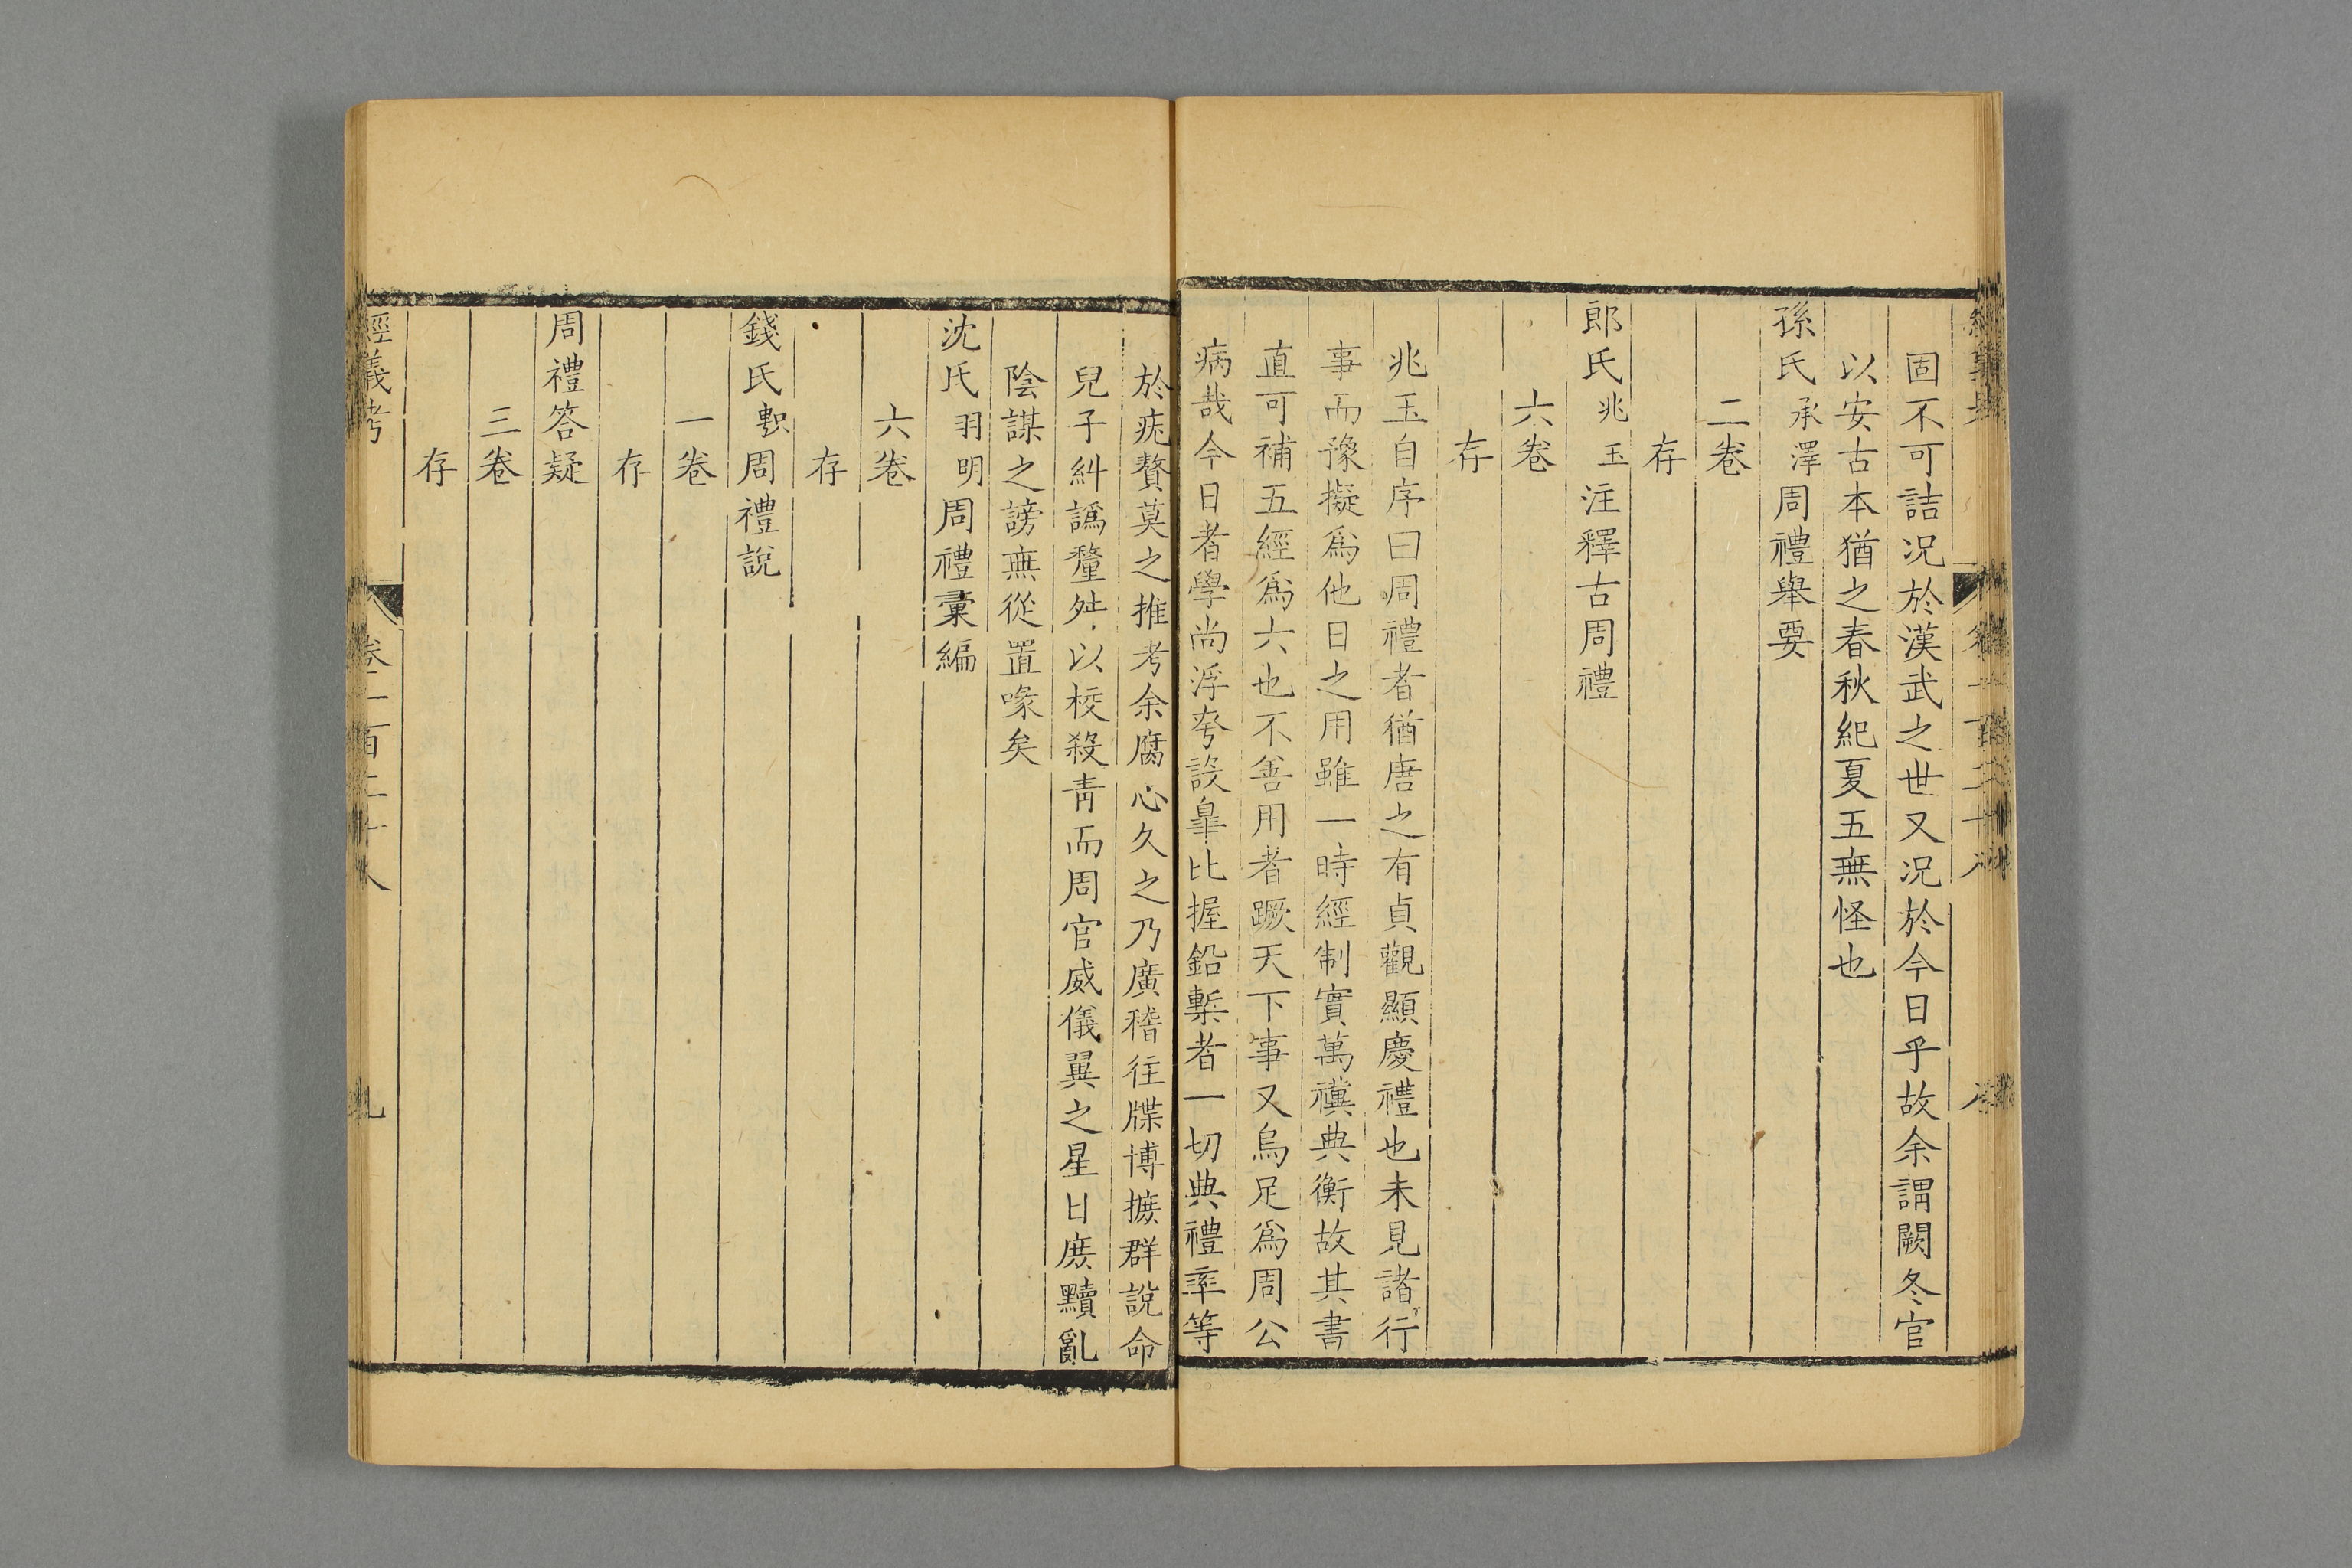 固不可詰况於漢武之世又况於今日乎故余謂闕冬官
以安古本猶之春秋紀夏五無怪也
孫氏承澤周禮舉要
二卷
存
郎氏兆玉注釋古周禮
六卷
存
兆玉自序曰周禮者猶唐之有貞觀顯慶禮也未見諸行
事而豫擬爲他日之用雖一時經制實萬禩典衡故其書
直可補五經爲六也不善用者蹶天下事又烏足爲周公
病哉今日者學尚浮夸設臯比握鉛槧者一切典禮率等
於疣贅莫之推考余腐心久之乃廣稽往牒博摭群說命
兒子糾譌釐舛以校殺靑而周官威儀翼之星日庻黷亂
陰謀之謗無從置喙矣
沈氏羽明周禮彙編
六卷
存
錢氏𡙇周禮說
一卷
存
周禮答疑
三卷
存
經義考
卷一百二十八
九